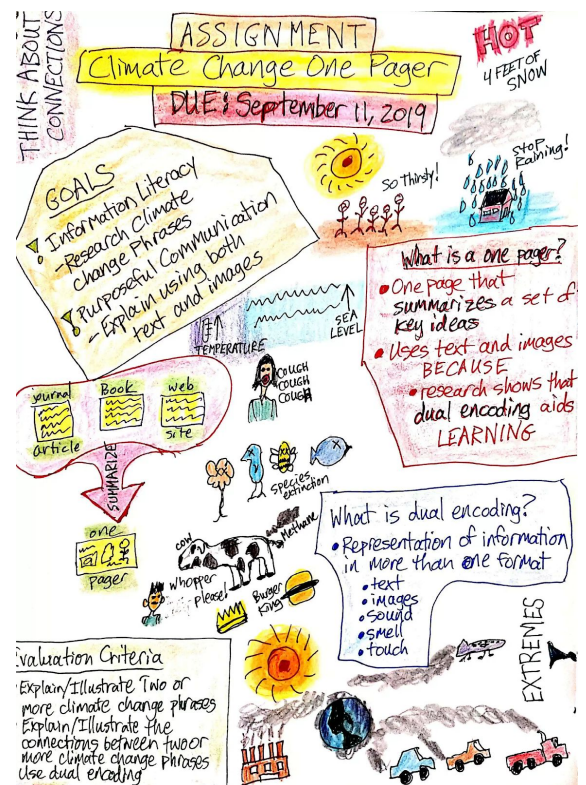 THINK ABOUT
CONNECTIONS
ASSIGNMENT
Climate Change One Pager
DUE: September 11, 2019
HOT
4 FEET OF
SNOW
GOALS
Information Literacy
-Research Climate
change Phrases
Purposeful Communication
- Explain using both
text and images
So Thirsty!
STOP
Raining!
What is a one pager?
• One page that
summarizes a set of
key ideas
• Uses text and images
BECAUSE
• research shows that
dual encoding aids
LEARNING
TEMPERATURE
SEA
LEVEL
COUGH
COUGH
COUGH
journal
article
Book
web
site
SUMMARIZE
one
pager
species
extinction
cow
Methane
Whopper
please!
Burger
King
What is dual encoding?
• Representation of information
in more than one format
• text
• images
• sound
• smell
• touch
EXTREMES
Evaluation Criteria
Explain/Illustrate Two or
more climate change phrases
Explain/Illustrate the
connections between two or
more climate change phrases
Use dual encoding